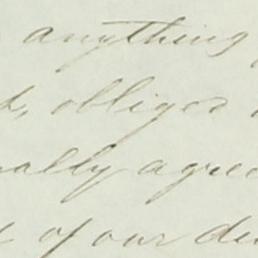 anything
obliges
ally agree
of our de